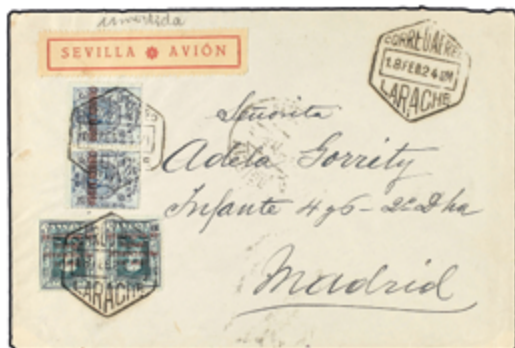 invertida
SEVILLA AVIÓN
CORREO AEREO
18 FEB 24
LARACHE
Señorita
Adela Gorrity
Infante 4 y 6 - 2º Dha
Madrid
LARACHE